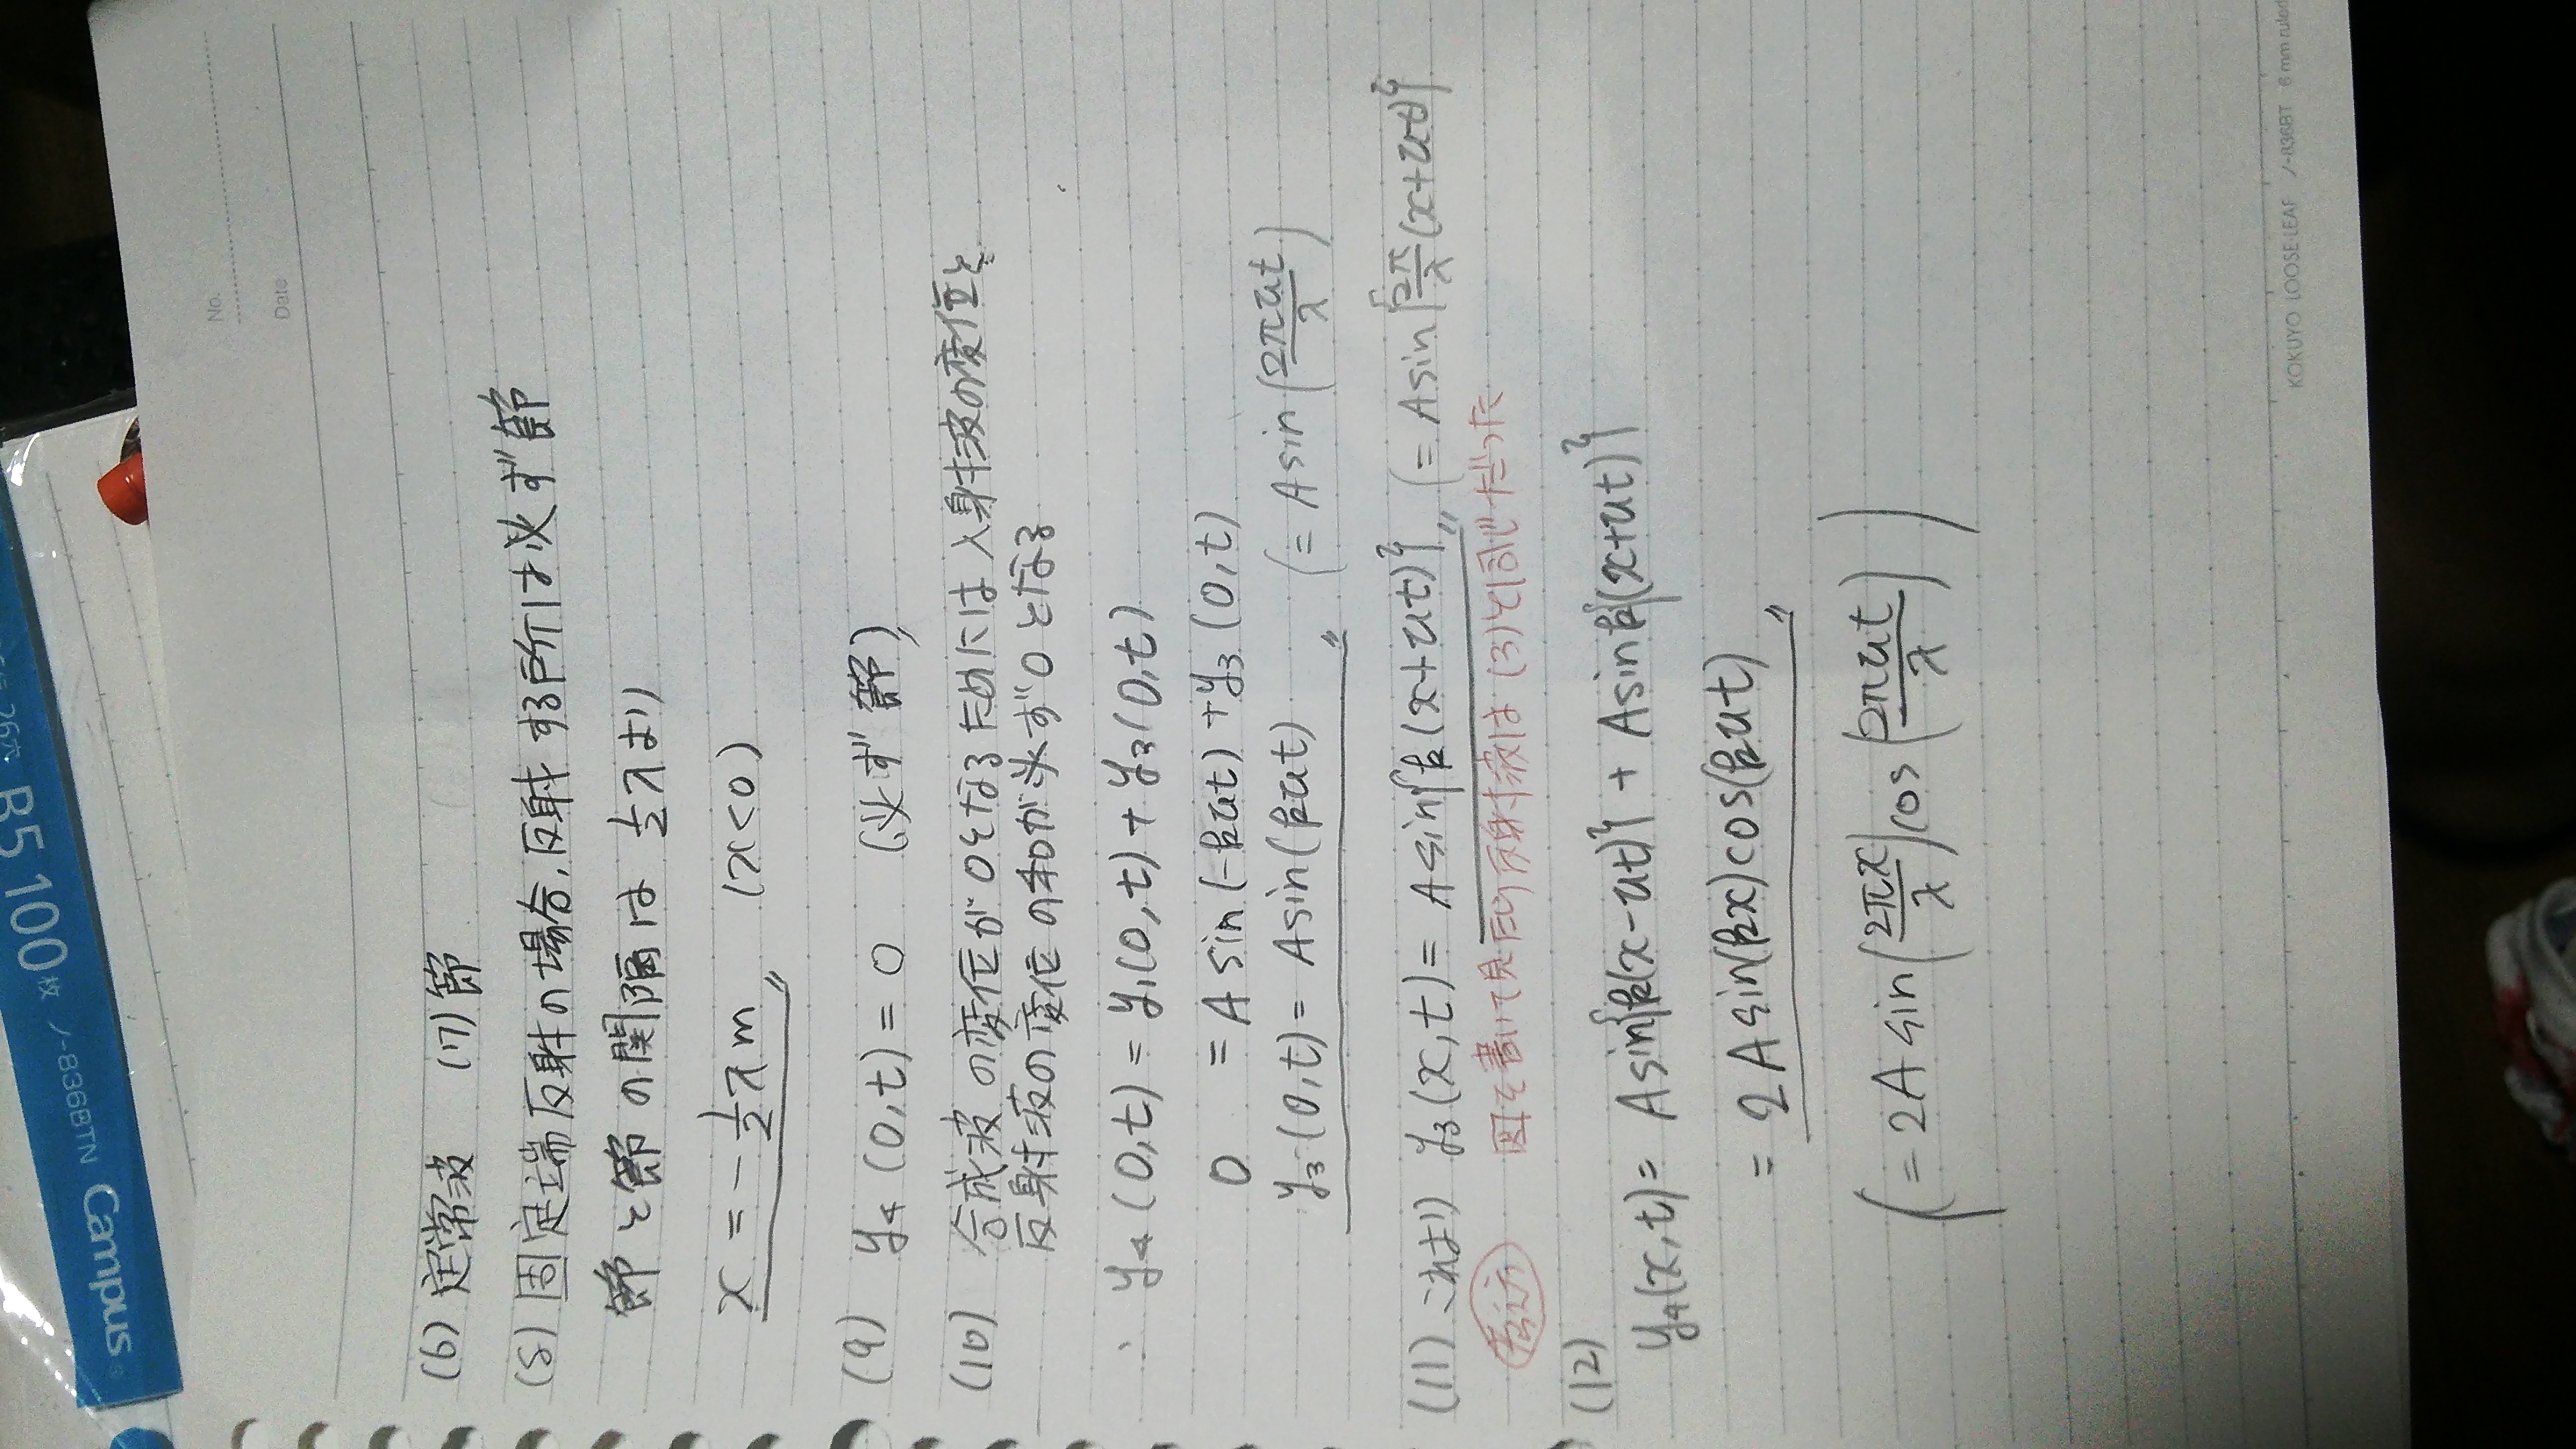 No.
Date
(6) 定常波 (7) 節
(8) 固定端反射の場合、反射する所は必ず節
節と節の間隔は 1/2 λより
x = - 1/2 λ m (x<0)
(9) y₄(0,t) = 0 (必ず節)
(10) 合成波の変位が0となるためには入射波の変位と
反射波の変位の和が必ず0となる
∴ y₄(0,t) = y₁(0,t) + y₃(0,t)
0 = A sin(-kut) + y₃(0,t)
y₃(0,t) = A sin(kut) (= A sin(2πut/λ))
(11) これより y₃(x,t) = A sin{k(x+ut)} (= A sin{2π/λ (x+ut)})
図を書いて見たら反射波は(3)と同じだった
(12)
y₄(x,t) = A sin{k(x-ut)} + A sin{k(x+ut)}
= 2A sin(kx) cos(kut)
(= 2A sin(2πx/λ) cos(2πut/λ))
KOKUYO LOOSE-LEAF ノ-836BT 6 mm ruled
B5 100枚 ノ-836BTN Campus